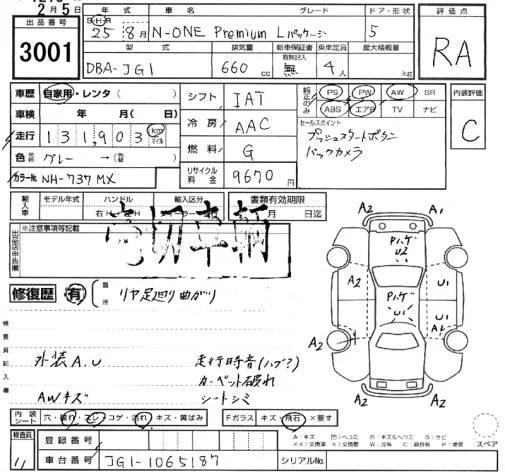 2月5日
出品番号
3001
年式 車名 グレード ドア・形状
SHR 25年8月 N-ONE Premium Lパッケージ 5
型式 排気量 新車保証書 有無記入 乗車定員 最大積載量
DBA-JG1 660cc 無 4人 kg
評価点
RA
車歴 自家用・レンタ( )
車検 年 月( 日)
走行 131,903 km マイル
色 グレー→( )
カラーNo NH-737MX
シフト IAT
冷房 AAC
燃料 G
リサイクル料金 9670円
純正のみ
PS PW AW SR
ABS エアB TV ナビ
セールスポイント
プッシュスタートボタン
バックカメラ
内装評価
C
輸入車 モデル年式 ハンドル 輸入区分 書類有効期限
右H 左H ディーラー 月 日迄
高切車輌
出品店申告欄
※注意事項等記載
修復歴 有 箇所 リヤ足廻り曲がり
検査員記入欄
外装A.U 走行時音(ハブ?)
カーペット破れ
AWキズ シートシミ
A2 A1
Pハゲ
U2
A2 U1
Pハゲ
U1
A2
A2 A2
内装シート 穴・破れ・スレ・コゲ・汚れ・キズ・黄ばみ Fガラス キズ・飛石・×要す
検査員
11
登録番号
車台番号 JG1-1065187 シリアルNo.
A:キズ U:ヘコミ B:キズ&ヘコミ S:サビ
X:交換要 XX:交換済 W:波有 C:腐食有 P:塗装
スペア